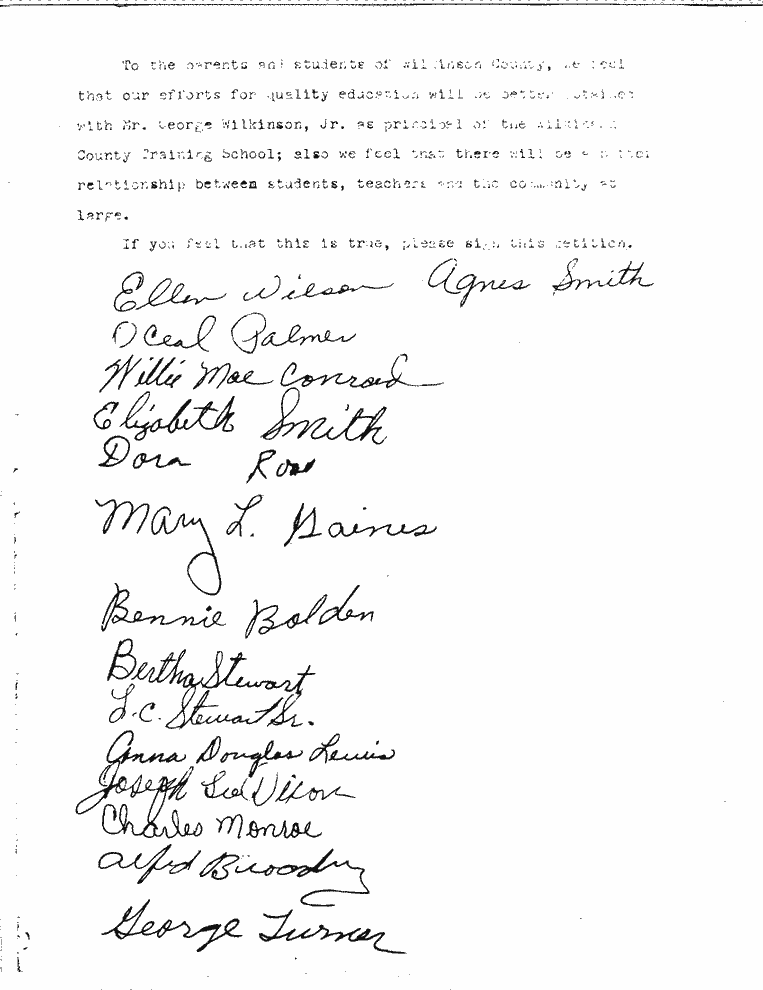 To the parents and students of Wilkinson County, we feel
that our efforts for quality education will be better obtained
with Mr. George Wilkinson, Jr. as principal of the Wilkinson
County Training School; also we feel that there will be a better
relationship between students, teachers and the community at
large.
If you feel that this is true, please sign this petition.
Ellen Wilson Agnes Smith
OCeal Palmer
Willie Mae Conrad
Elizabeth Smith
Dora Ross
Mary L. Gaines
Bennie Bolden
Bertha Stewart
L.C. Stewart Sr.
Anna Douglas Lewis
Joseph Dixon
Charles Monroe
Alfred
George Turner